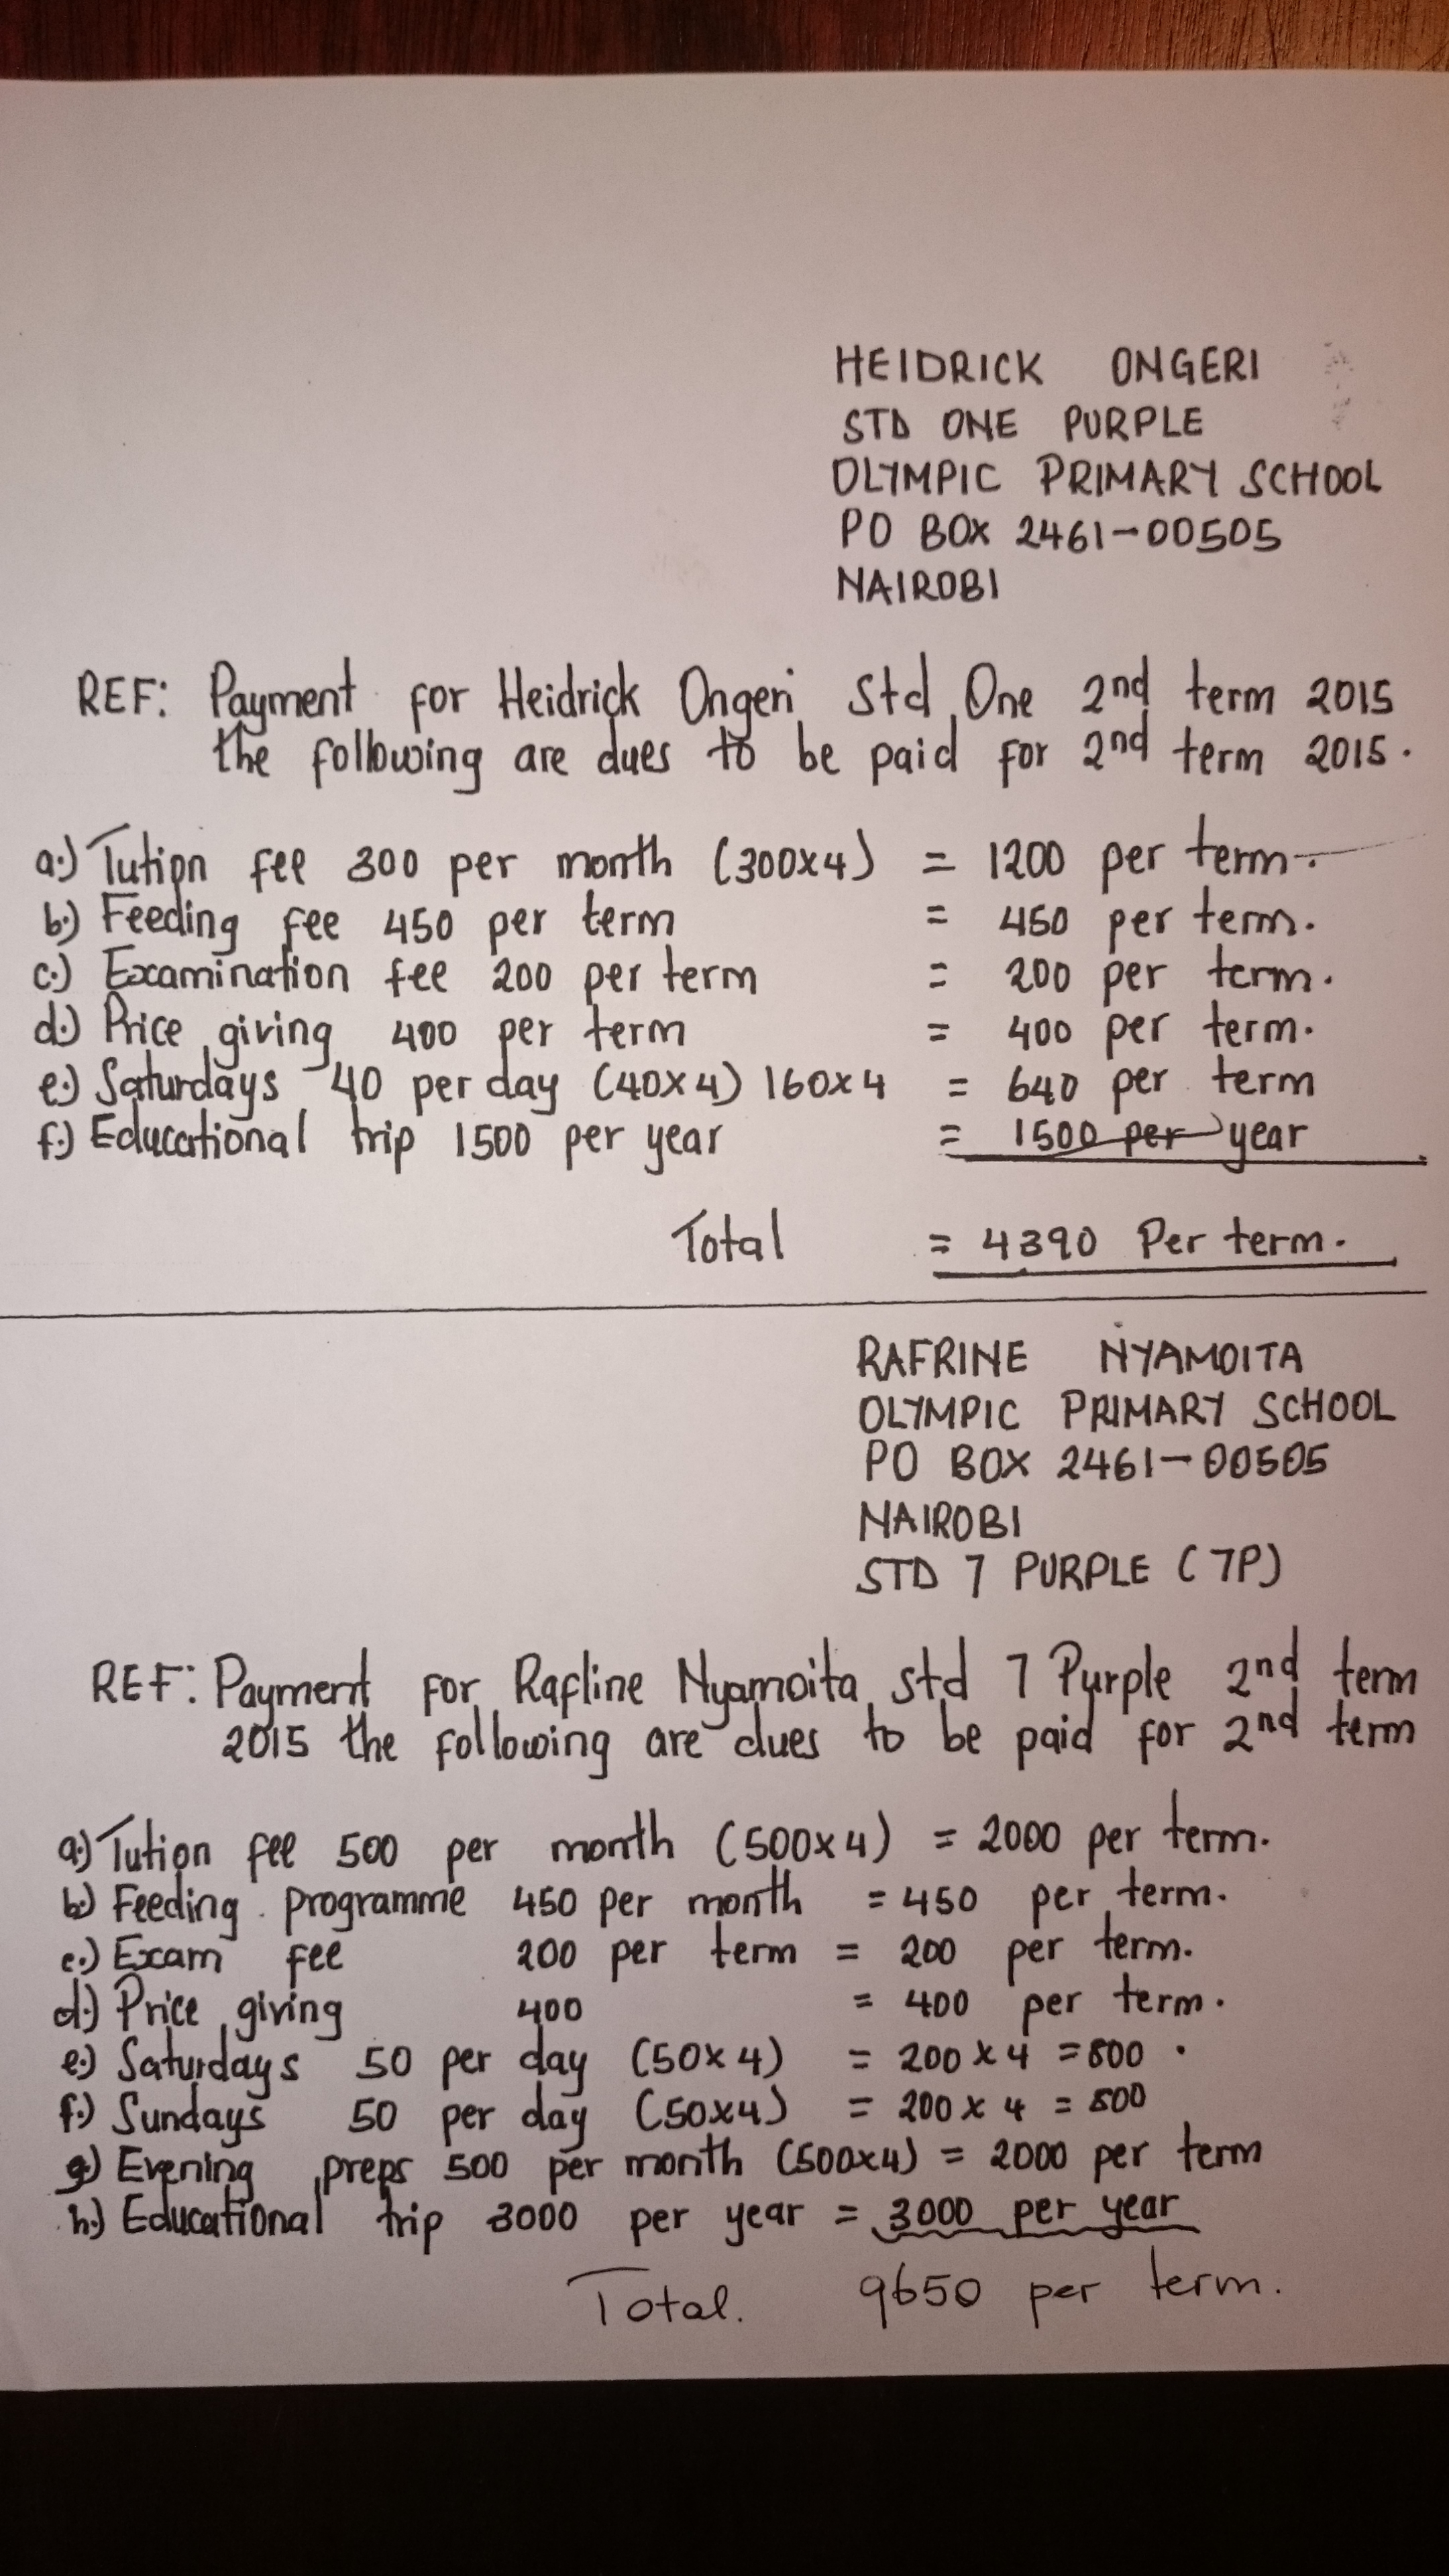 HEIDRICK ONGERI
STD ONE PURPLE
OLYMPIC PRIMARY SCHOOL
PO BOX 2461-00505
NAIROBI
REF: Payment for Heidrick Ongeri Std One 2nd term 2015
the following are dues to be paid for 2nd term 2015.
a.) Tution fee 300 per month (300x4) = 1200 per term.
b.) Feeding fee 450 per term = 450 per term.
c.) Examination fee 200 per term = 200 per term.
d.) Price giving 400 per term = 400 per term.
e.) Saturdays 40 per day (40x4) 160x4 = 640 per term
f.) Educational trip 1500 per year = 1500 per year
Total = 4390 Per term.
RAFRINE NYAMOITA
OLYMPIC PRIMARY SCHOOL
PO BOX 2461-00505
NAIROBI
STD 7 PURPLE (7P)
REF: Payment for Rafline Nyamoita std 7 Purple 2nd term
2015 the following are dues to be paid for 2nd term
a.) Tution fee 500 per month (500x4) = 2000 per term.
b.) Feeding programme 450 per month = 450 per term.
c.) Exam fee 200 per term = 200 per term.
d.) Price giving 400 = 400 per term.
e.) Saturdays 50 per day (50x4) = 200 x 4 = 800.
f.) Sundays 50 per day (50x4) = 200 x 4 = 800
g.) Evening preps 500 per month (500x4) = 2000 per term
h.) Educational trip 3000 per year = 3000 per year
Total. 9650 per term.